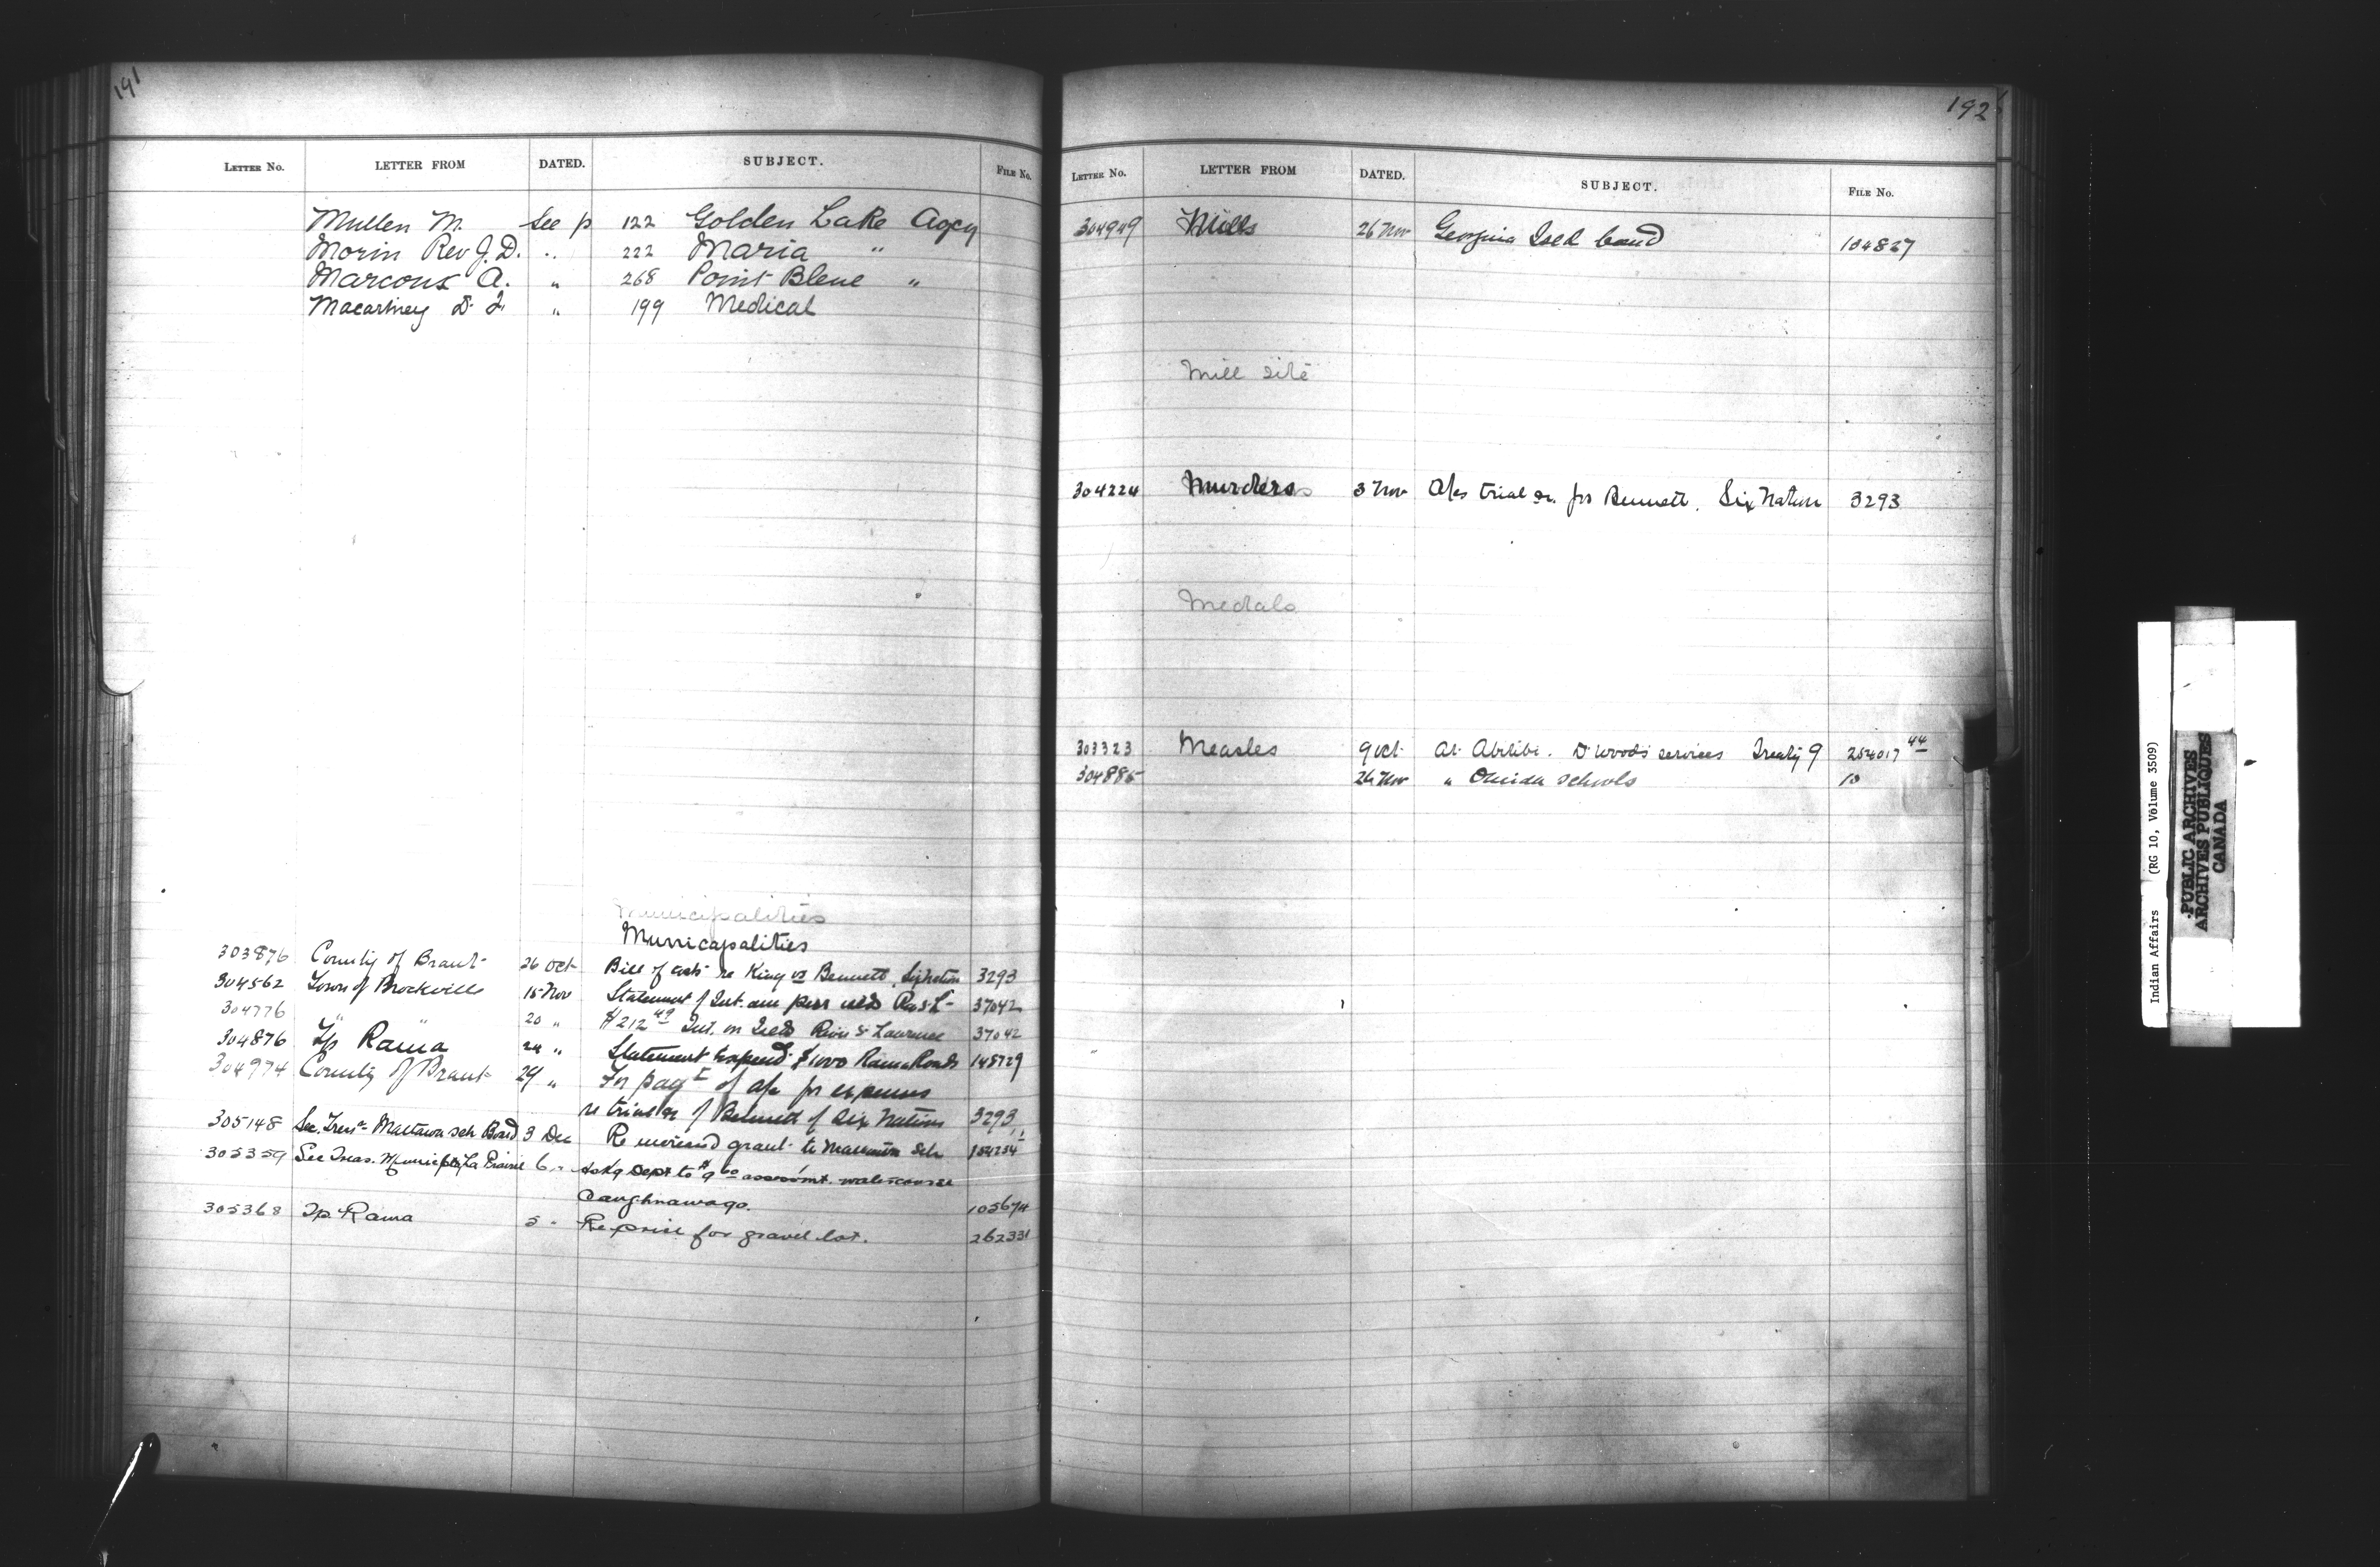 191
LETTER No. LETTER FROM DATED. SUBJECT. FILE No.
Mullen M. See p 122 Golden Lake Agcy
Morin Rev J. D. " 222 Maria "
Marcoux A. " 268 Point Bleue "
Macartney D. L. " 199 Medical
Municipalities
Municapalities
303876 County of Brant 26 Oct Bill of costs re King vs Bennett, Six Nation 3293
304562 Town of Brockville 15 Nov Statement of Int. 37042
304776 " " 20 " $212 49 Int. on Islds River St Lawrence 37042
304876 Tp Rama 24 " Statement expend. $1000 Rama Roads 148729
304974 County of Brant 29 " For payt of a/c for expenses
re trial &c of Bennett of Six Nations 3293
305148 Sec. Treas. Mattawa Sch Board 3 Dec Re increased grant to Mattawa Sch 154234
305359 Sec Treas. Municip La Prairie 6 " Askg Dept to assessmt. watercourse
Caughnawaga. 105674
305368 Tp. Rama 5 " Re price for gravel lot. 262331
192
LETTER No. LETTER FROM DATED. SUBJECT. FILE No.
304949 Mills 26 Nov Georgina Isld band 104827
Mill site
304224 Murders 3 Nov A/cs trial &c. for Bennett, Six Nation 3293
Medals
303323 Measles 9 Oct At Abitibi. Dr Wood's services Treaty 9 254017 44
304885 26 Nov " Oneida schools 10
Indian Affairs (RG 10, Volume 3509)
PUBLIC ARCHIVES
ARCHIVES PUBLIQUES
CANADA